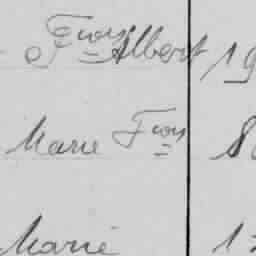 Fçois Albert 19
Marie Fçois 8
Marie 1